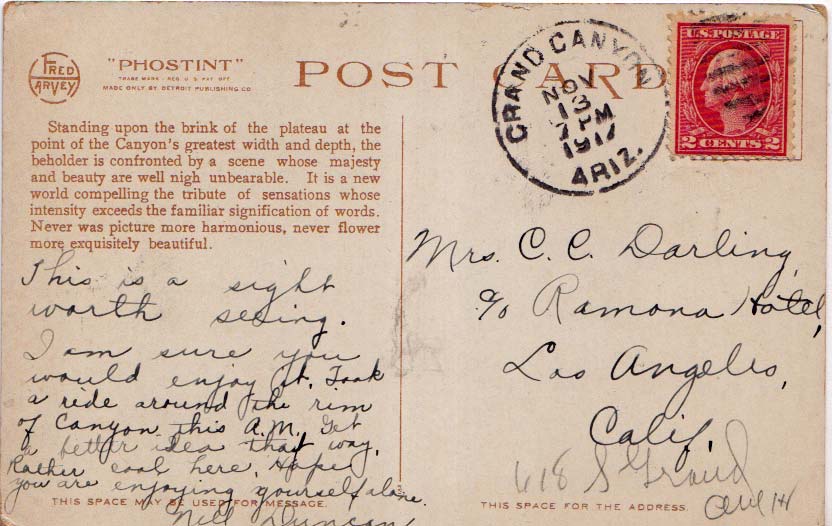 FRED
HARVEY
"PHOSTINT"
TRADE MARK · REG. U.S. PAT. OFF.
MADE ONLY BY DETROIT PUBLISHING CO
POST CARD
GRAND CANYON
NOV
13
7 PM
1917
ARIZ.
U.S. POSTAGE
2 CENTS 2
Standing upon the brink of the plateau at the
point of the Canyon's greatest width and depth, the
beholder is confronted by a scene whose majesty
and beauty are well nigh unbearable. It is a new
world compelling the tribute of sensations whose
intensity exceeds the familiar signification of words.
Never was picture more harmonious, never flower
more exquisitely beautiful.
This is a sight
worth seeing.
I am sure you
would enjoy it. Took
a ride around the rim
of Canyon this A.M. Get
a better idea that way.
Rather cool here. Hope
you are enjoying yourself alone.
Nell Duncan
THIS SPACE MAY BE USED FOR MESSAGE.
Mrs. C. C. Darling,
c/o Ramona Hotel,
Los Angeles,
Calif.
618 S Grand
THIS SPACE FOR THE ADDRESS.